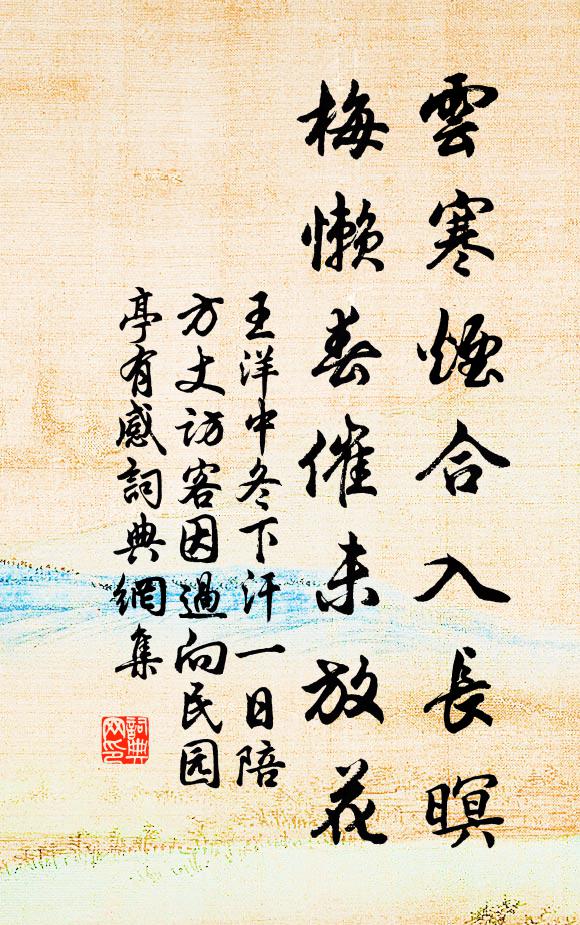 雲寒煙合入長暝
梅懶春催未放花
王洋中冬下汗一日陪
方丈訪客因過向民园
亭有感詞典網集
詞典
网印